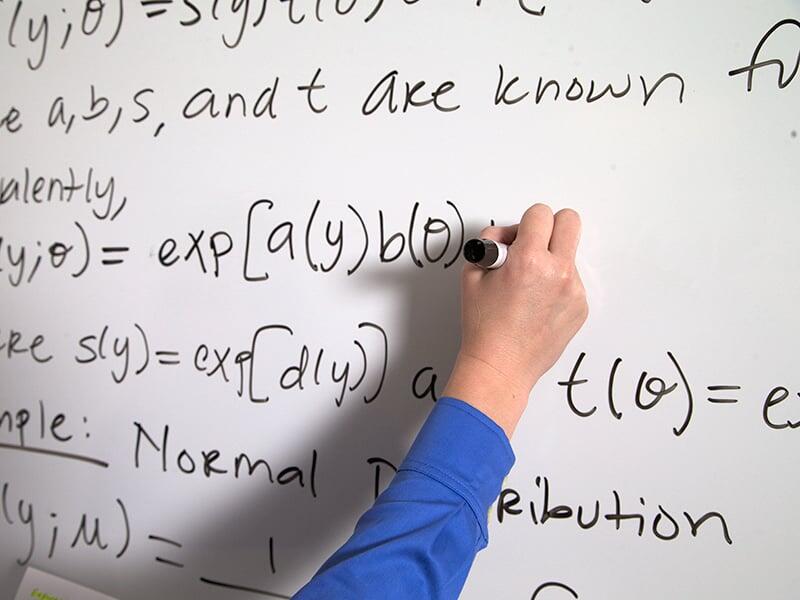 (y;θ) = s(y)t(θ)
a, b, s, and t are known
alently,
(y;θ) = exp[a(y)b(θ)
s(y) = exp[d(y)] t(θ) =
mple: Normal D ribution
(y;μ) = 1